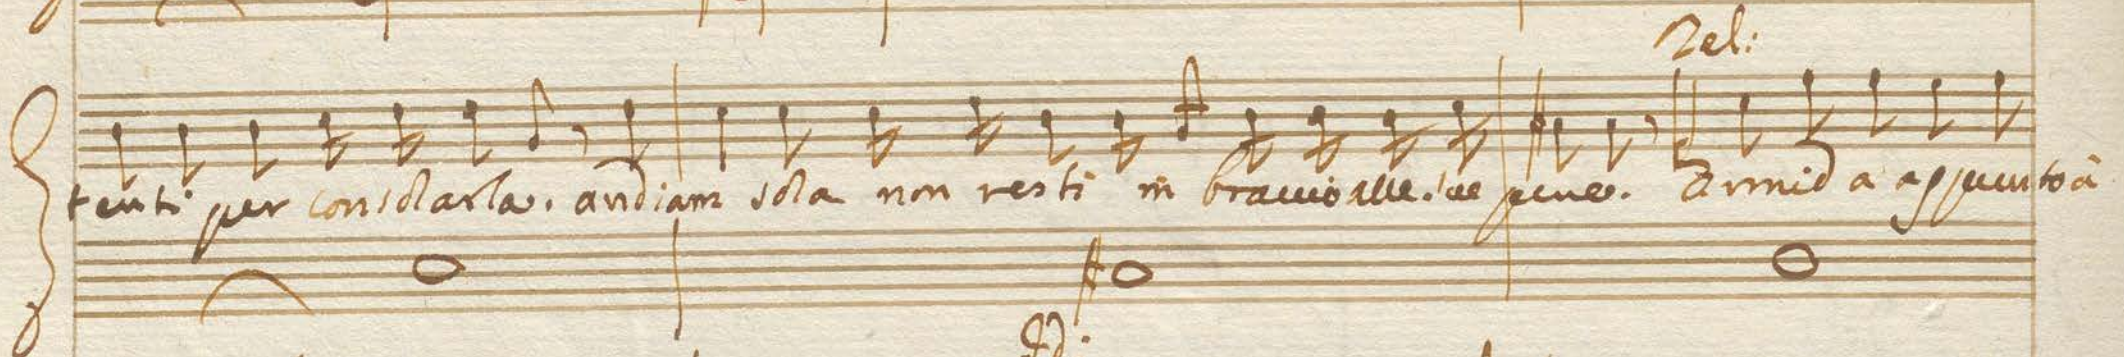 Zel:
tenti per consolarla. andiam sola non resti in braccio alle sue pene. Armida appunto à